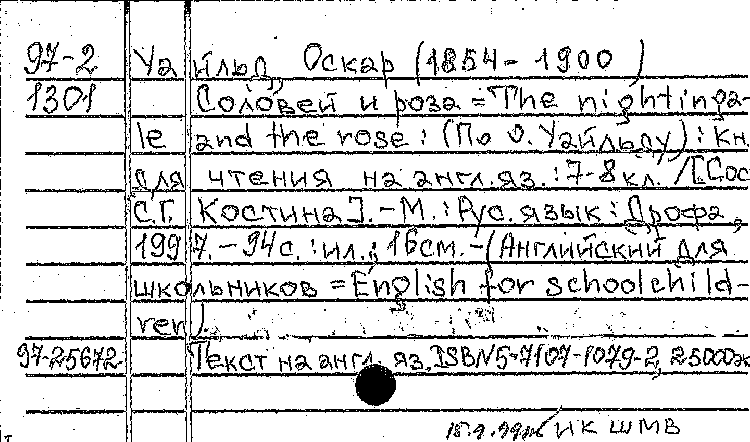 97-2 Уайльд, Оскар (1854-1900)
1301 Соловей и роза = The nightinga-
le and the rose : (По О. Уайльду) : Кн.
для чтения на англ. яз. : 7-8 кл. / [Сос
С.Г. Костина]. - М. : Рус. язык : Дрофа,
1997. - 94 с. : ил. ; 16 см. - (Английский для
школьников = English for schoolchild-
ren).
97-25672 Текст на англ. яз. ISBN 5-7107-1079-2, 25000эк
ИК ШМВ